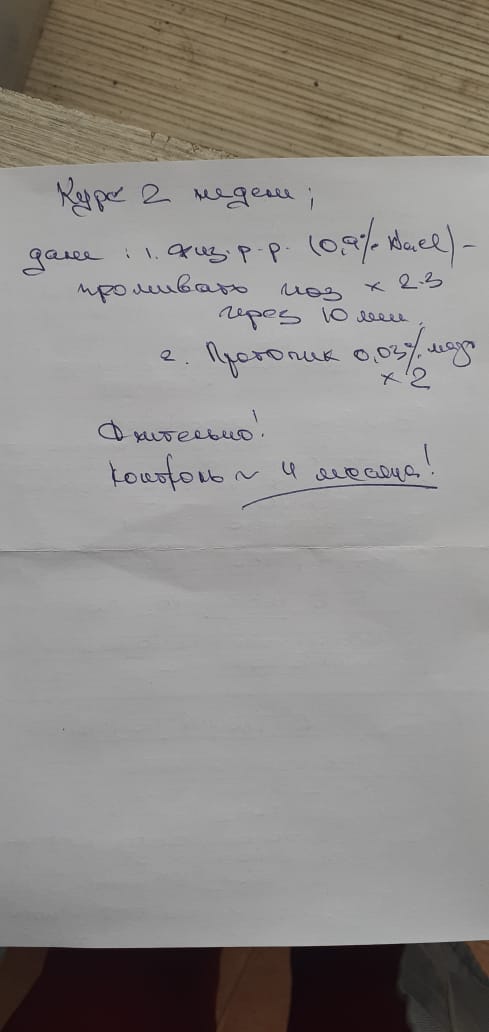 Курс 2 недели;
далее: 1. Физ. р-р. (0,9% NaCl) -
промывать
x 2-3
через 10 мин.
2. Протопик 0,03% мазь
x 2
Длительно!
Контроль ~ 4 месяца!